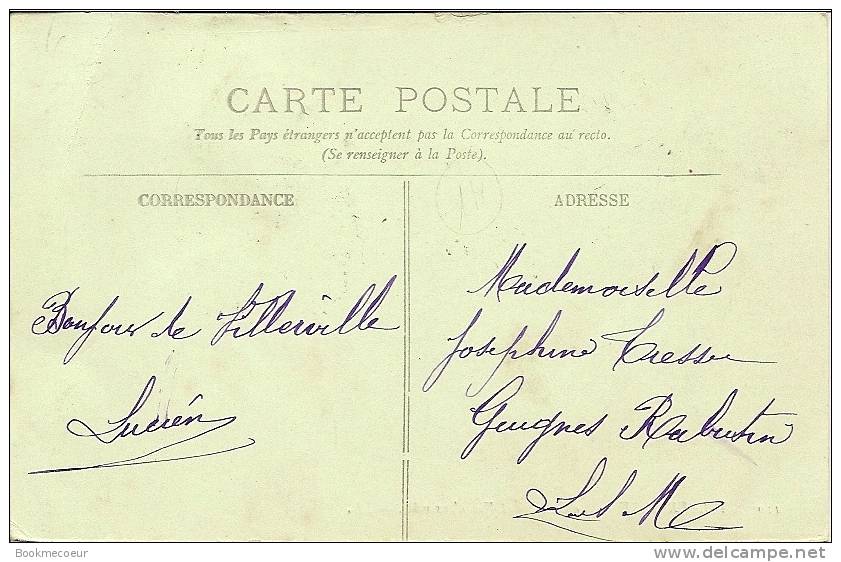 CARTE POSTALE
Tous les Pays étrangers n'acceptent pas la Correspondance au recto.
(Se renseigner à la Poste).
CORRESPONDANCE
Bonjour de Villerville
Lucien
ADRESSE
Mademoiselle
Joséphine
Guignes Rabutin
S. et M.
Bookmecoeur
delcampe.net